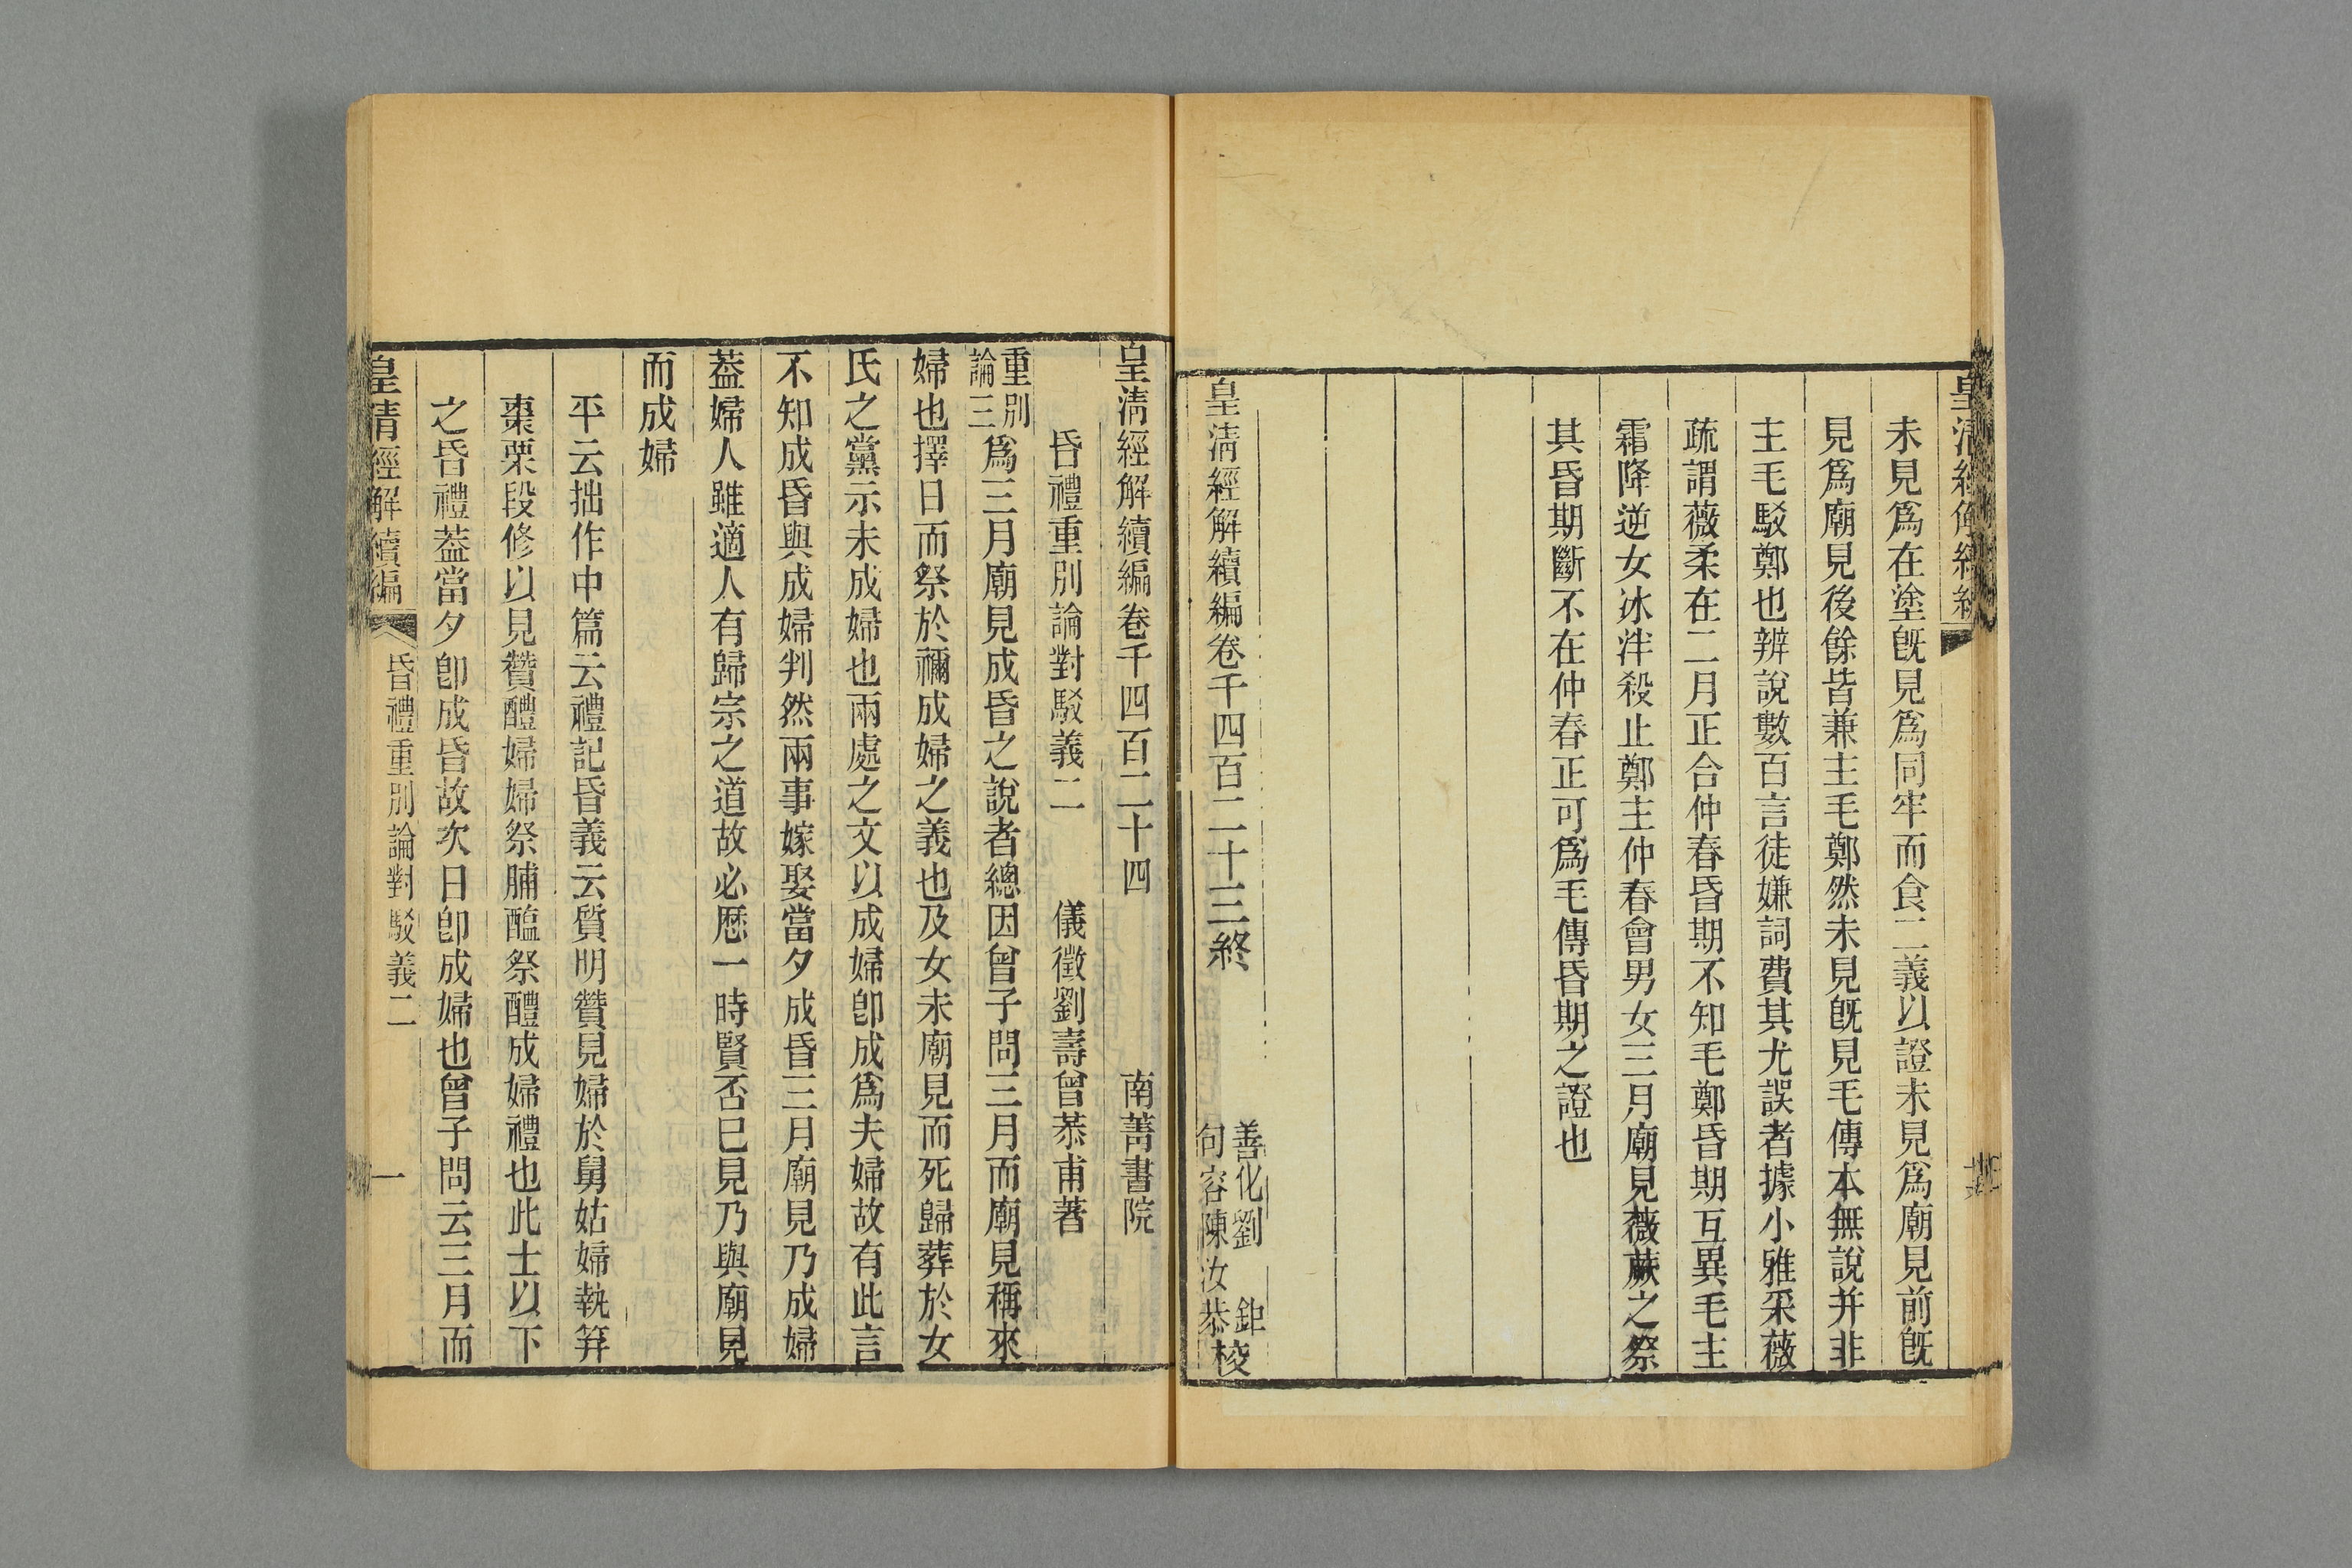 皇清經解續編
未見爲在塗旣見爲同牢而食二義以證未見爲廟見前旣
見爲廟見後餘皆兼主毛鄭然未見旣見毛傳本無說并非
主毛駁鄭也辨說數百言徒嫌詞費其尤誤者據小雅采薇
疏謂薇柔在二月正合仲春昏期不知毛鄭昏期互異毛主
霜降逆女冰泮殺止鄭主仲春會男女三月廟見薇蕨之祭
其昏期斷不在仲春正可爲毛傳昏期之證也
皇淸經解續編卷千四百二十三終
善化劉鉅
句容陳汝恭校
皇淸經解續編卷千四百二十四
南菁書院
昏禮重別論對駁義二
儀徵劉壽曾恭甫著
重別論三爲三月廟見成昏之說者總因曾子問三月而廟見稱來
婦也擇日而祭於禰成婦之義也及女未廟見而死歸葬於女
氏之黨示未成婦也兩處之文以成婦卽成爲夫婦故有此言
不知成昏與成婦判然兩事嫁娶當夕成昏三月廟見乃成婦
葢婦人雖適人有歸宗之道故必歷一時賢否已見乃與廟見
而成婦
平云拙作中篇云禮記昏義云質明贊見婦於舅姑婦執笲
棗栗段修以見贊醴婦婦祭脯醢祭醴成婦禮也此士以下
之昏禮葢當夕卽成昏故次日卽成婦也曾子問云三月而
皇清經解續編
昏禮重別論對駁義二
一